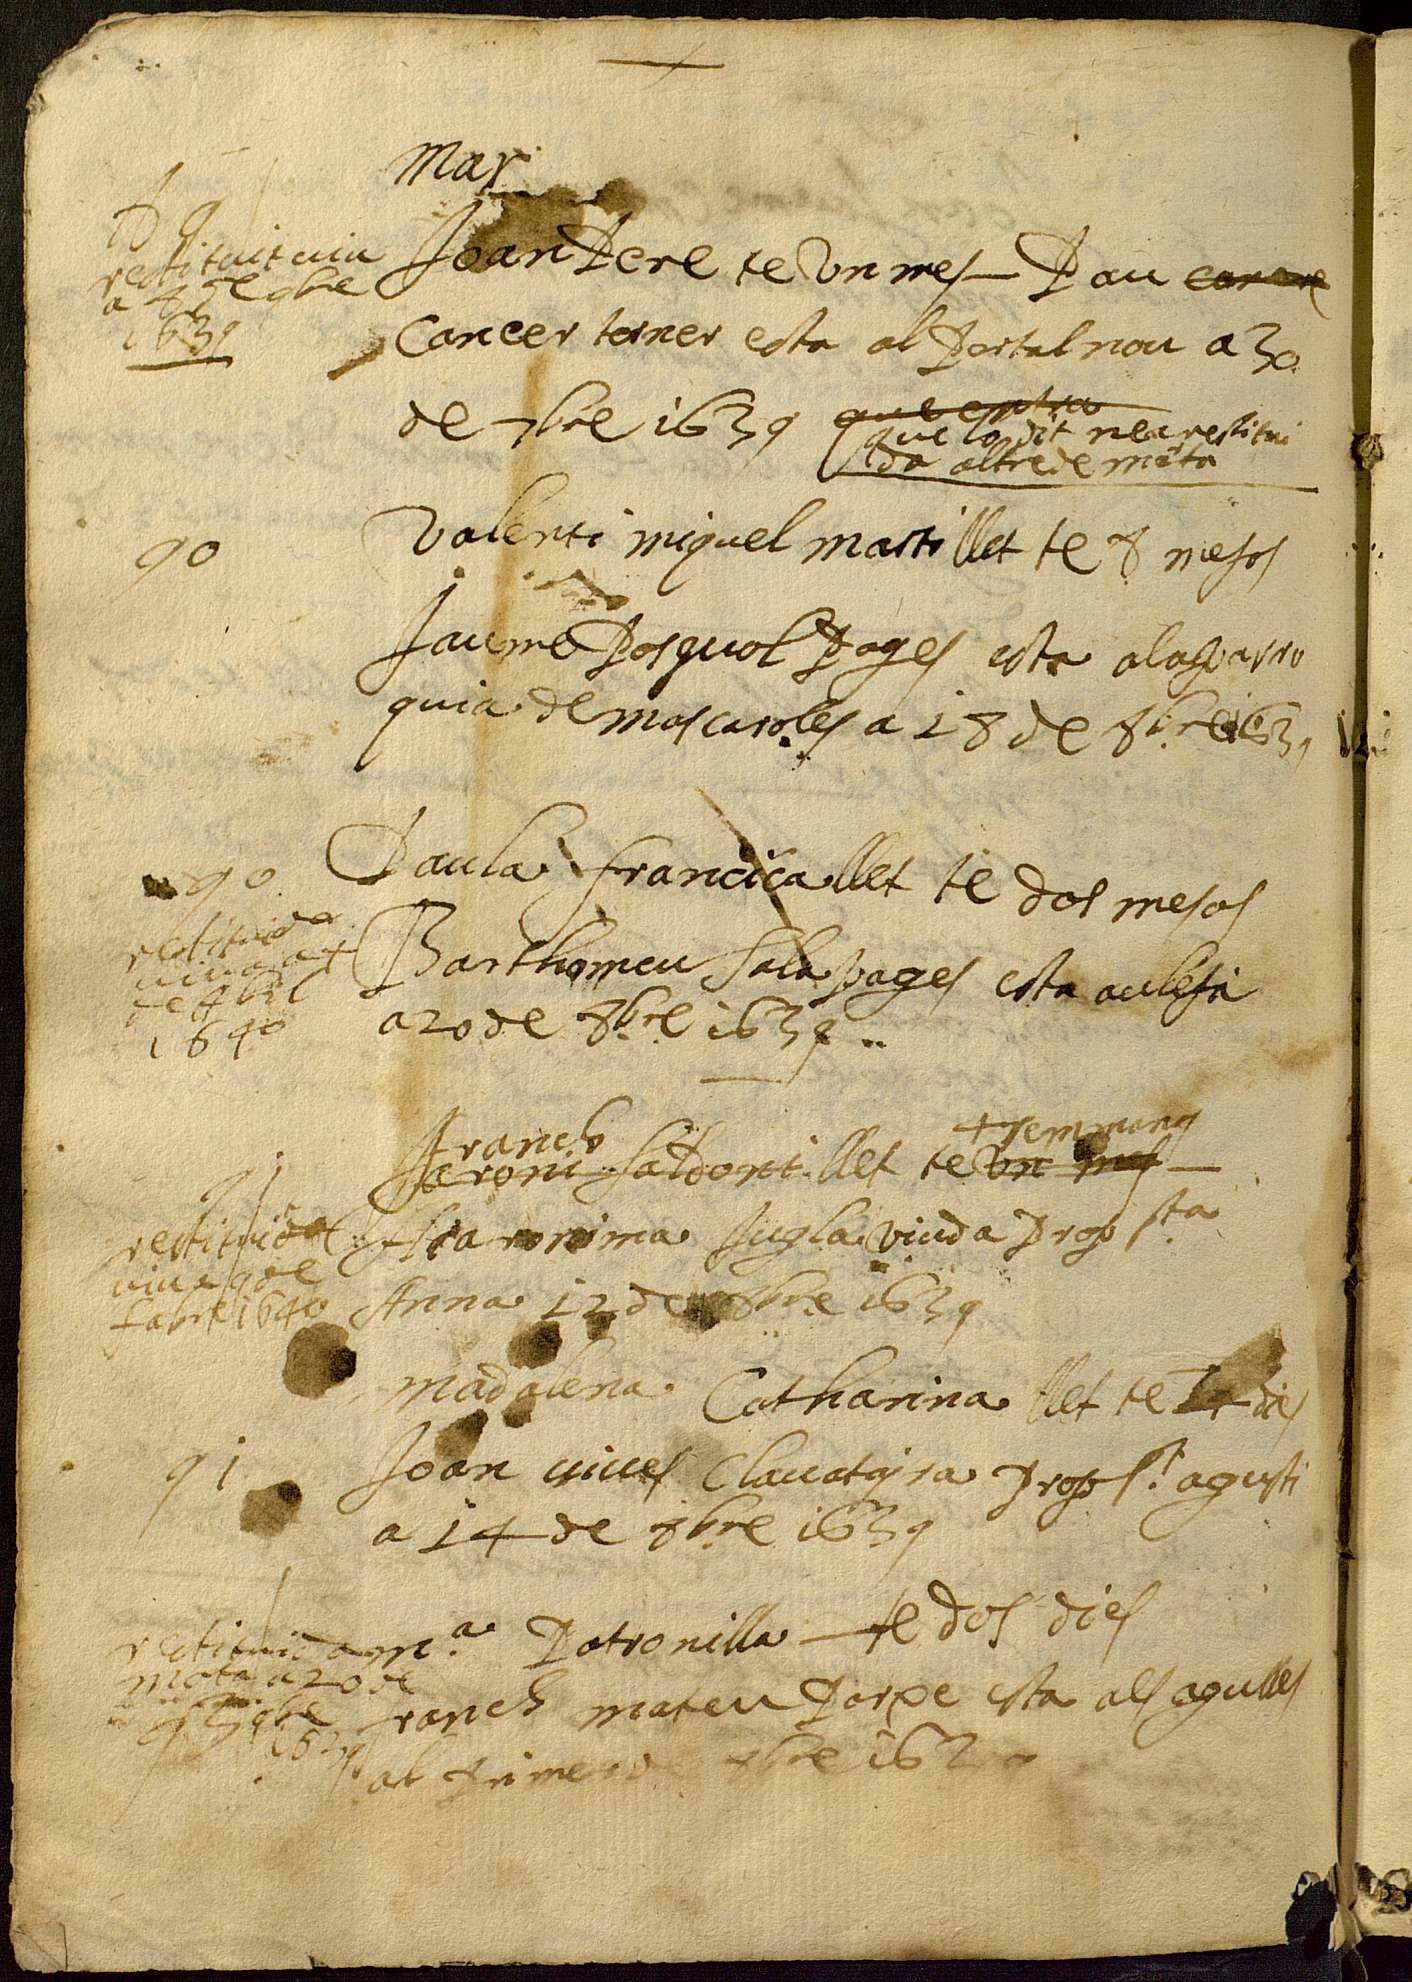 Mar
restituit viu
a 4 de 9bre
1639
Joan Pere te Un mes — Pau
Cancer torner esta al Portal nou a 30
de 7bre 1639
que lo dit nea restitui
da altre de
90
Valenti miquel marti llet te 8 mesos
Jaume Posquol Pages esta a la parro
quia de moscaroles a 18 de 8bre 1639
90
Paula francisca llet te dos mesos
restituida
viva a 7
de Abril
1640
Barthomeu Sala pages esta a olesa
a 20 de 8bre 1639
Franch
Jeroni Saldoni llet te Un mes —
91
restituida
viva 9 de
fabre 1640
Hieronima Jugla viuda Prop Sta
Anna 12 de 8bre 1639
madalena Catharina llet te dies
91
Joan vives Clavataira prop St. agusti
a 14 de 8bre 1639
restituida
mota a 20 de
9bre
1639
Ma. Patronilla — te dos dies
franch mateu esta als agulles
al Primer de 8bre 1639